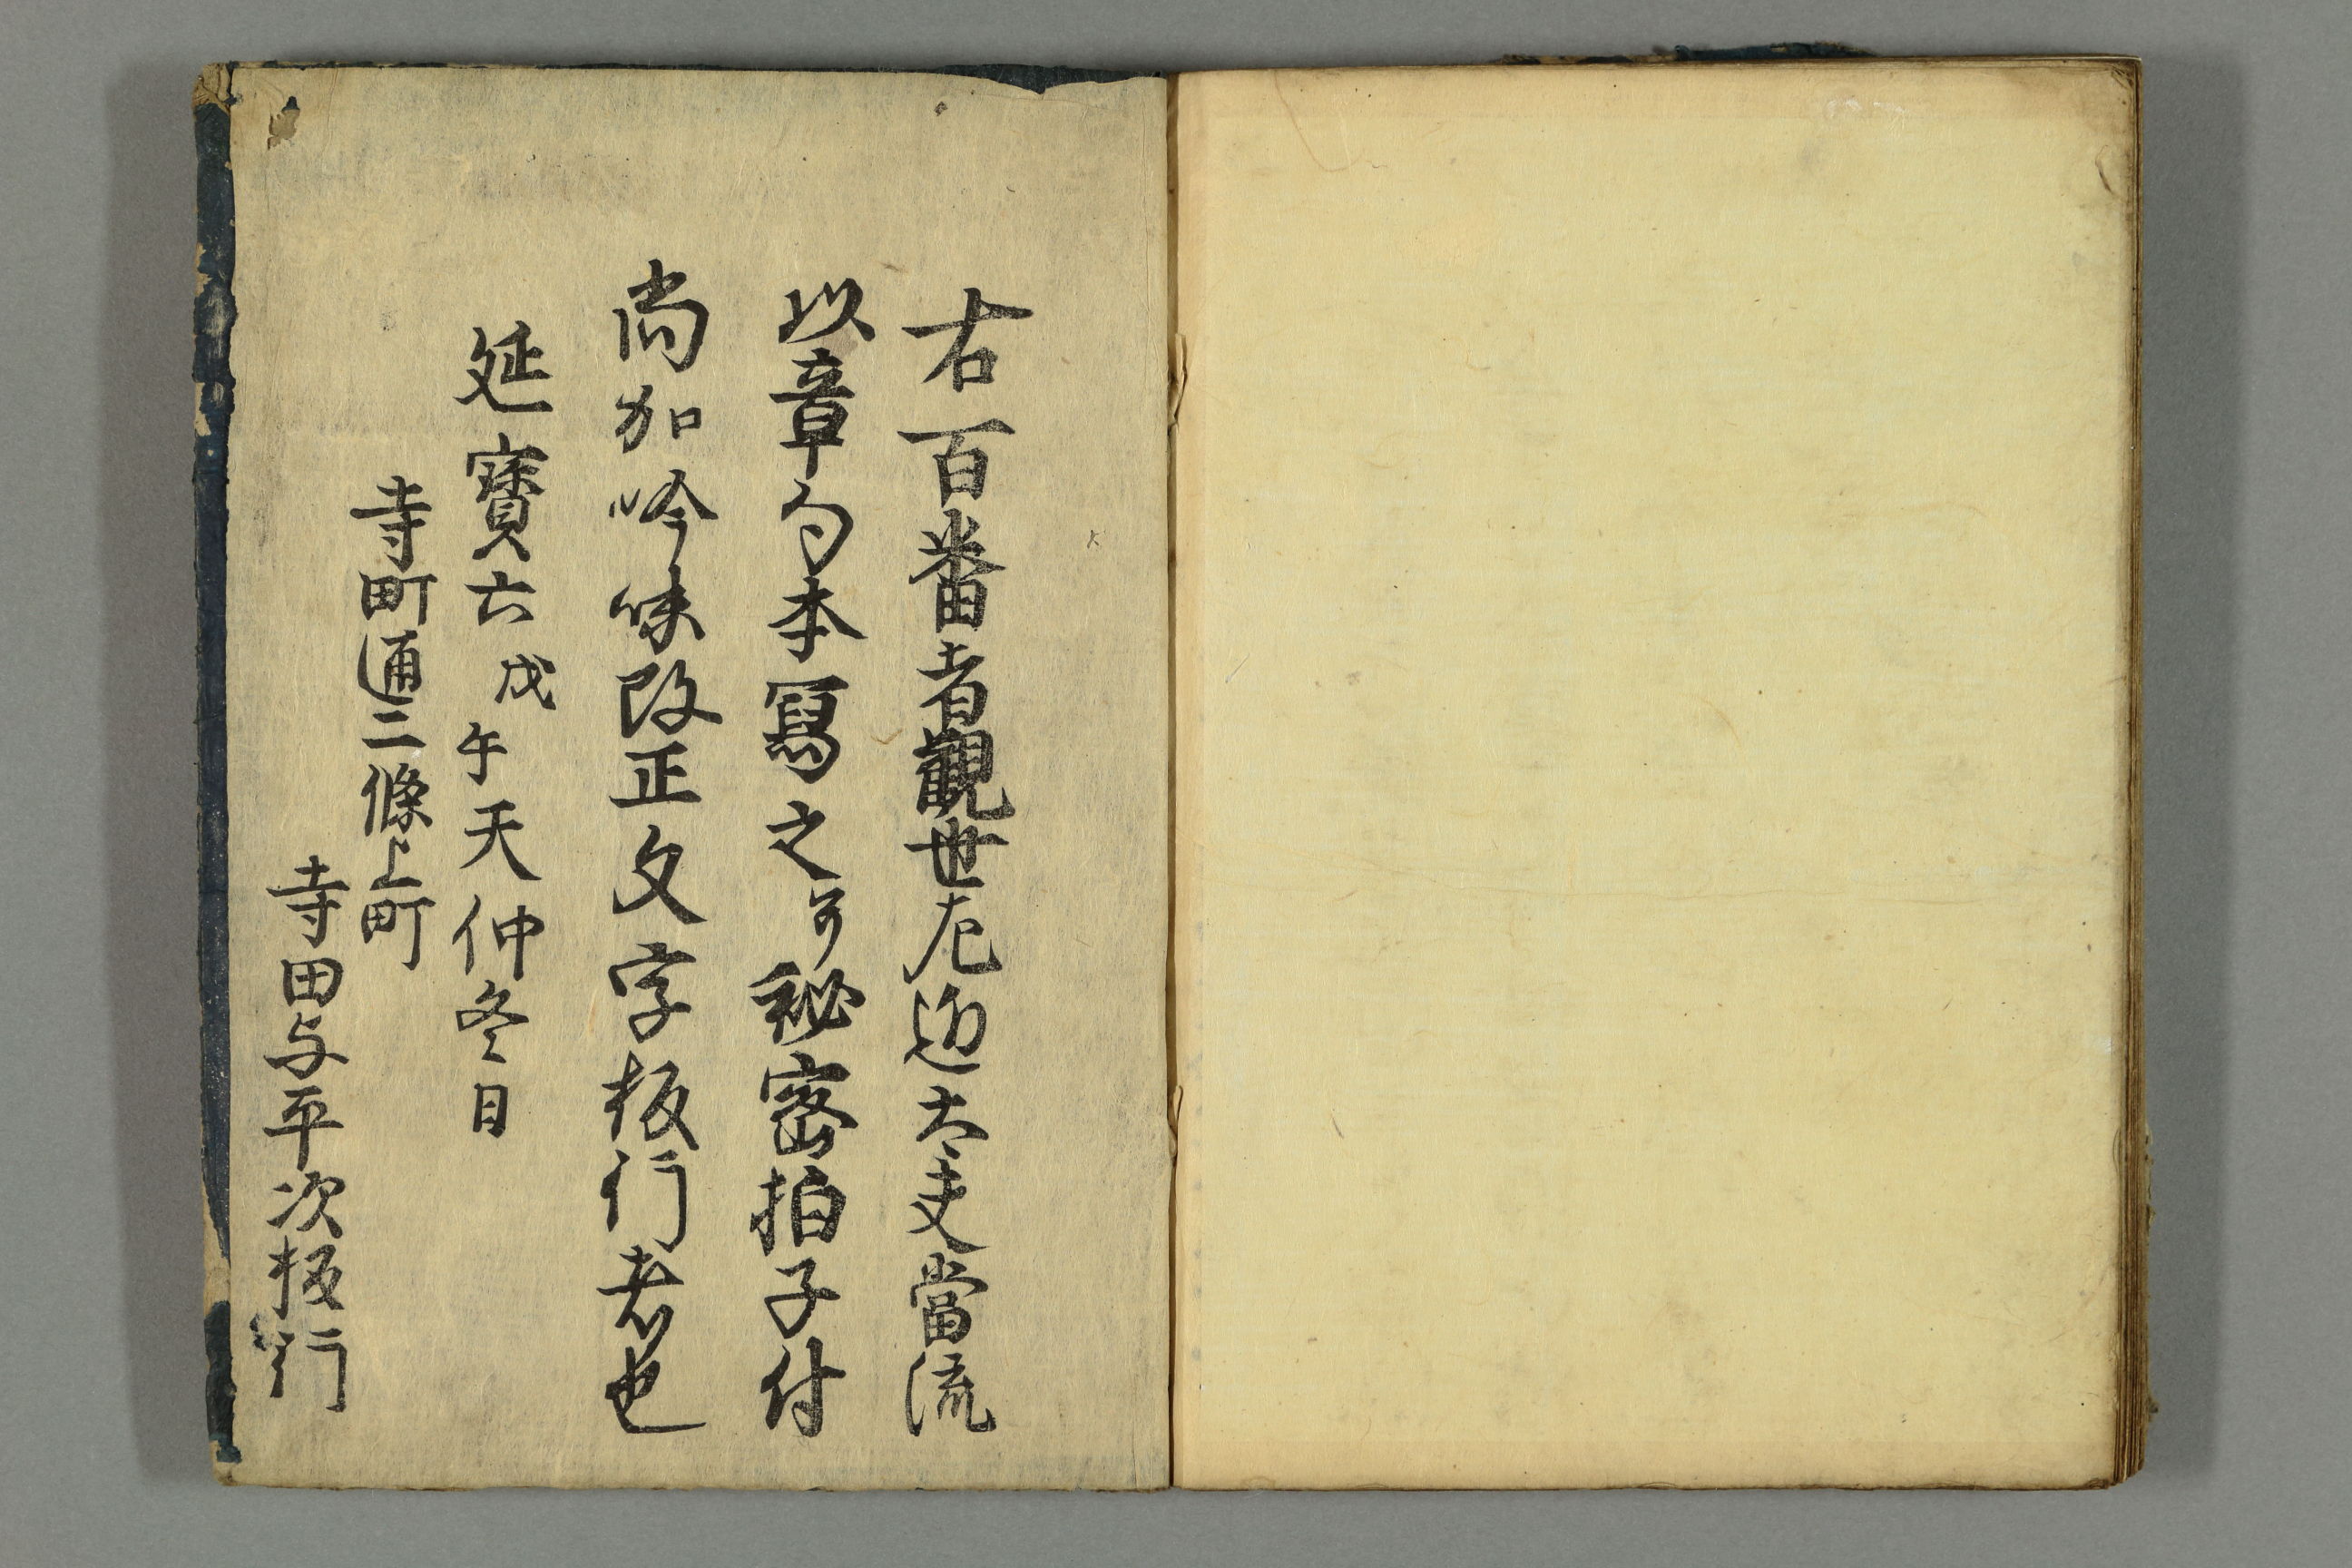 右百番者觀世左近太夫當流
以章句本寫之兮秘密拍子付
尚加吟味改正文字板行者也
延寶六戊午天仲冬日
寺町通二條上町
寺田与平次板行